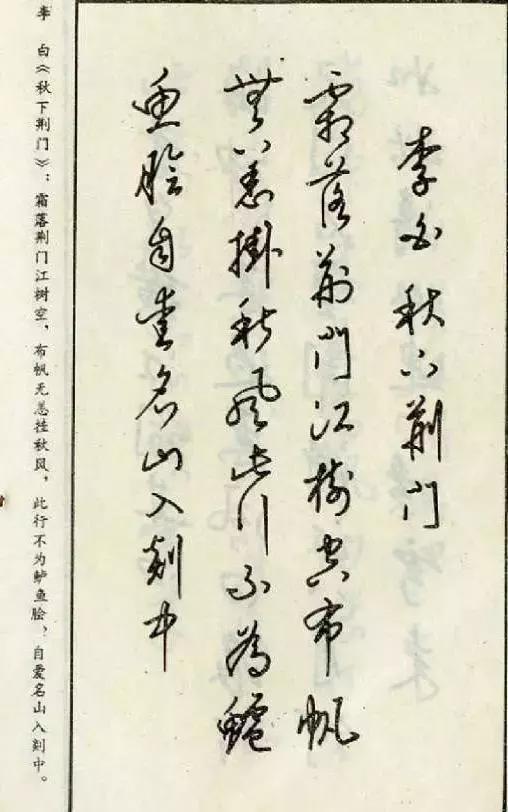 李白秋下荆门
霜落荆门江樹空布帆
無恙掛秋風此行不為鱸
魚膾自愛名山入剡中
李 白《秋下荆门》：霜落荆门江树空，布帆无恙挂秋风，此行不为鲈鱼脍，自爱名山入剡中。